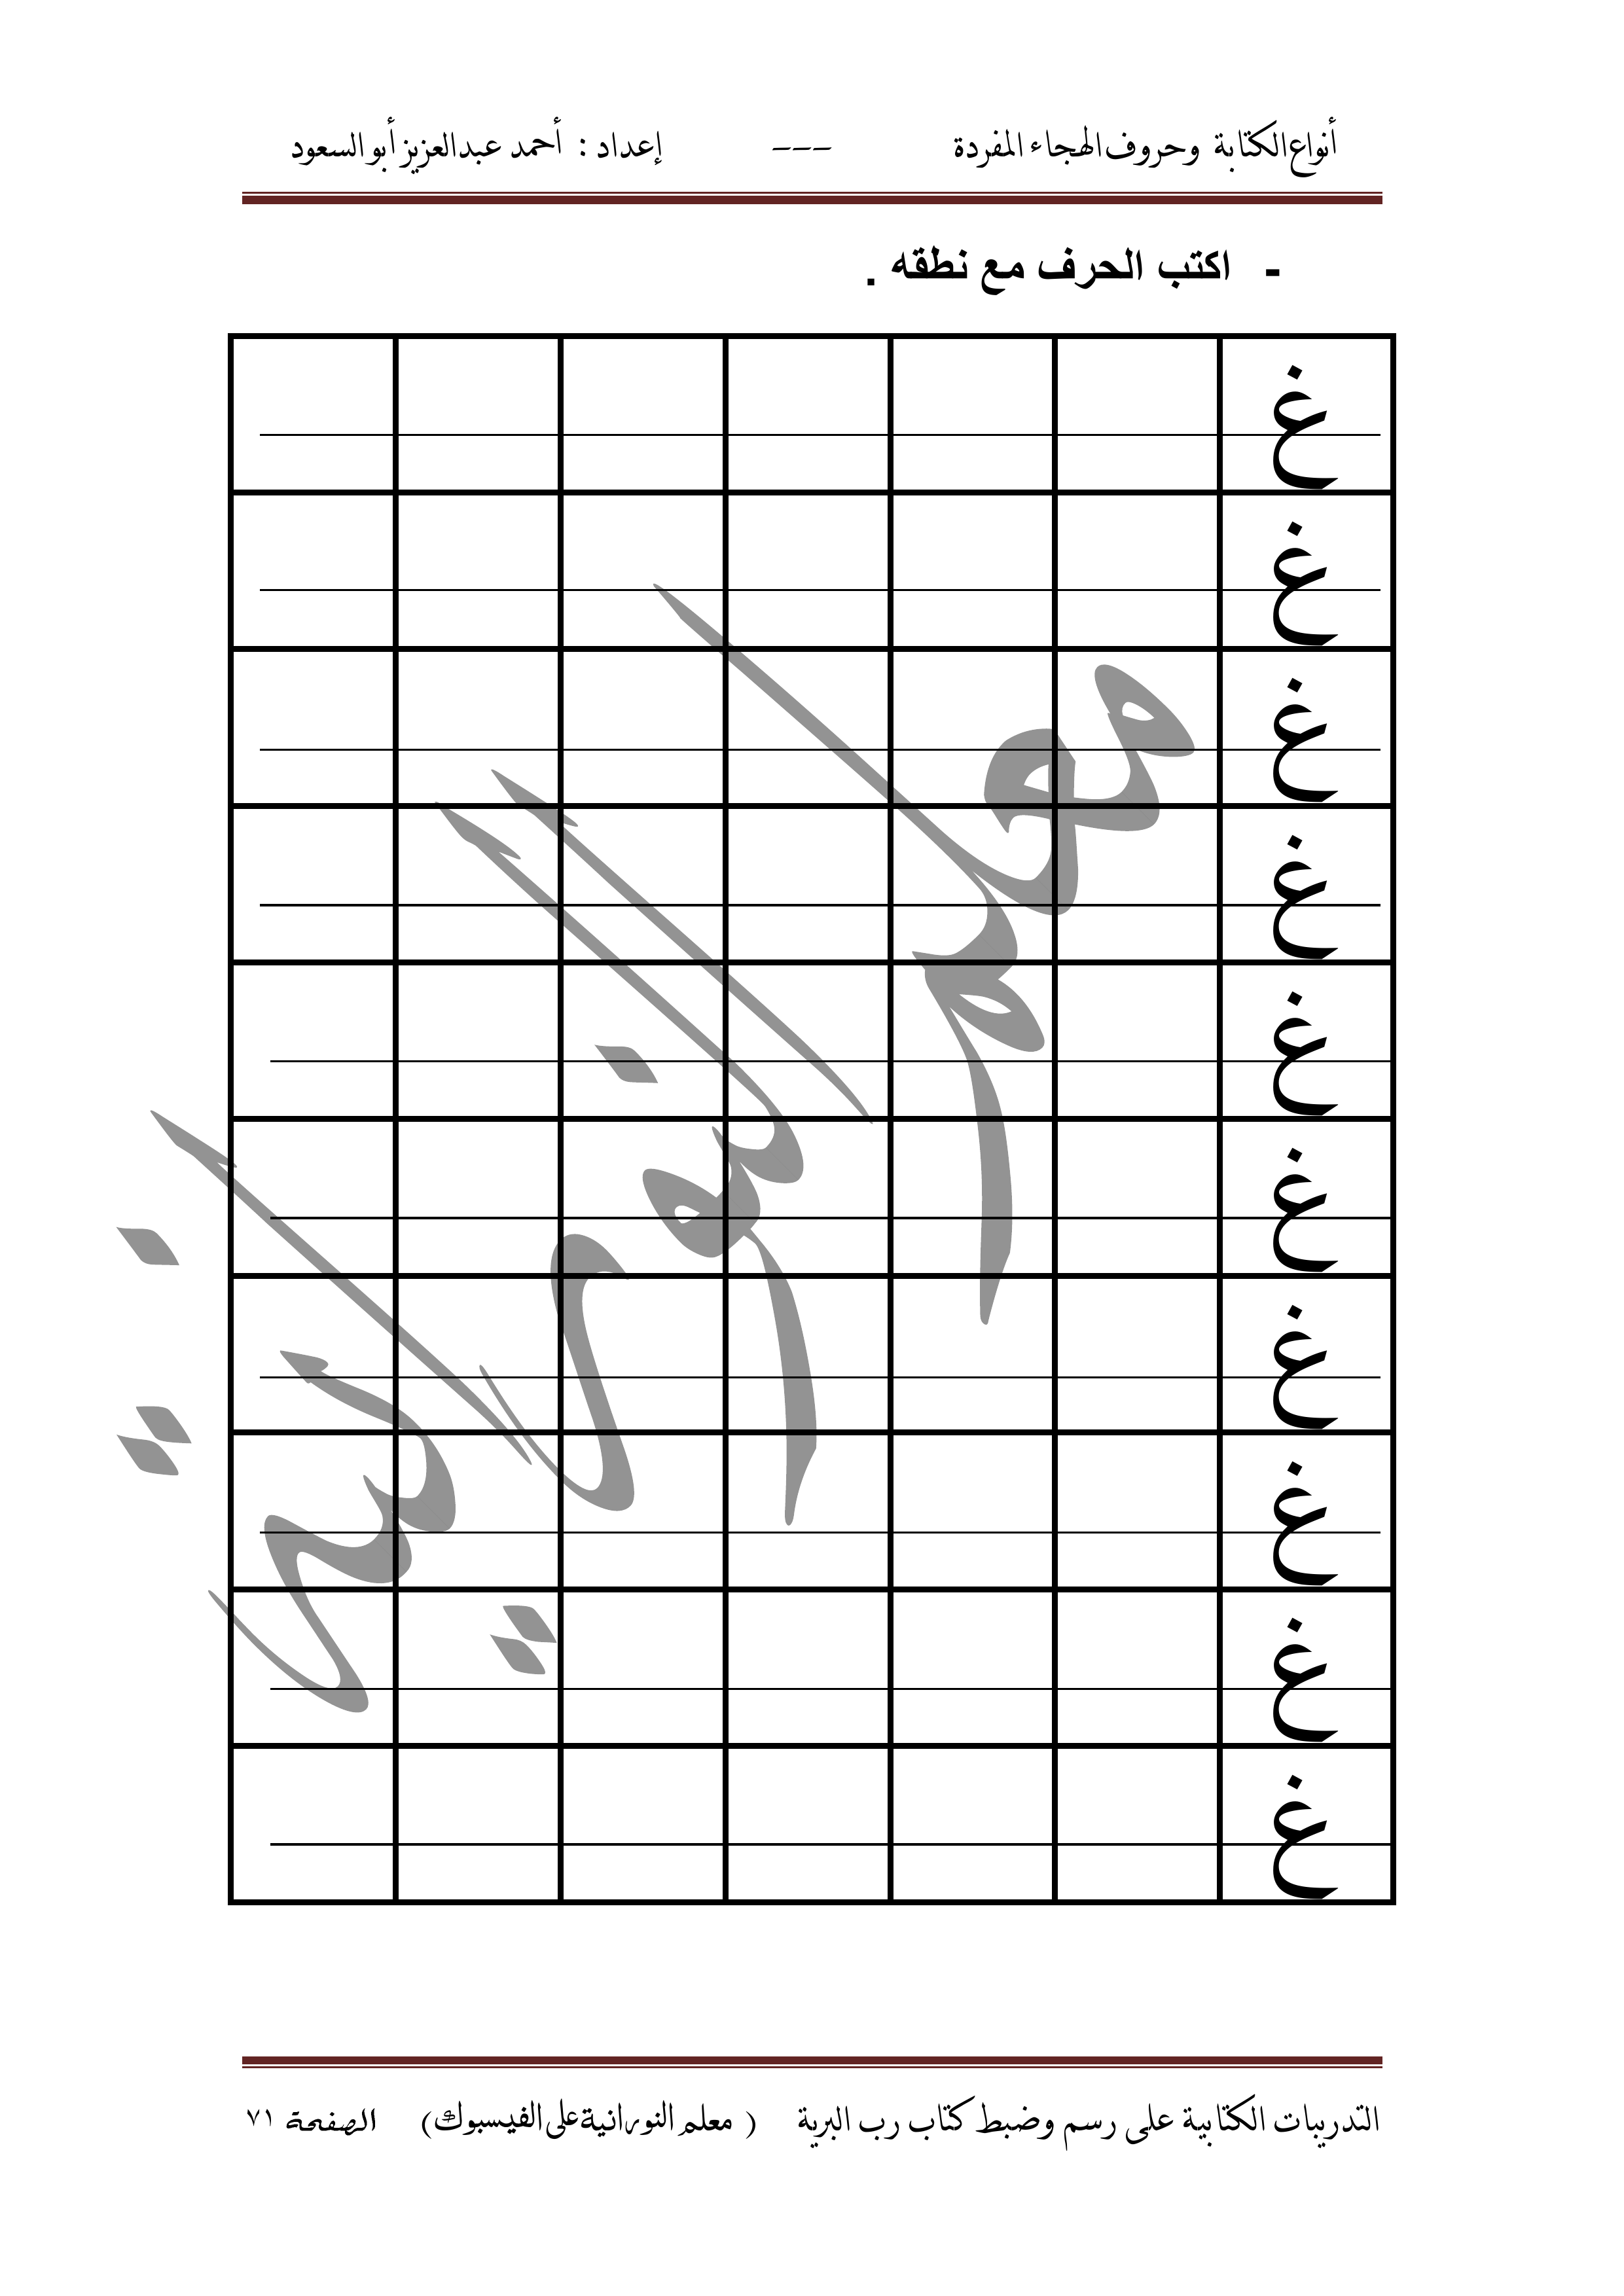 أنواع الكتابة وحروف الهجاء المفردة --- إعداد : أحمد عبدالعزيز أبو السعود
- اكتب الحرف مع نطقه .
غ
غ
غ
غ
غ
غ
غ
غ
غ
غ
معلم النورانية
التدريبات الكتابية على رسم وضبط كتاب رب البرية ( معلم النورانية على الفيسبوك) الصفحة ٧١